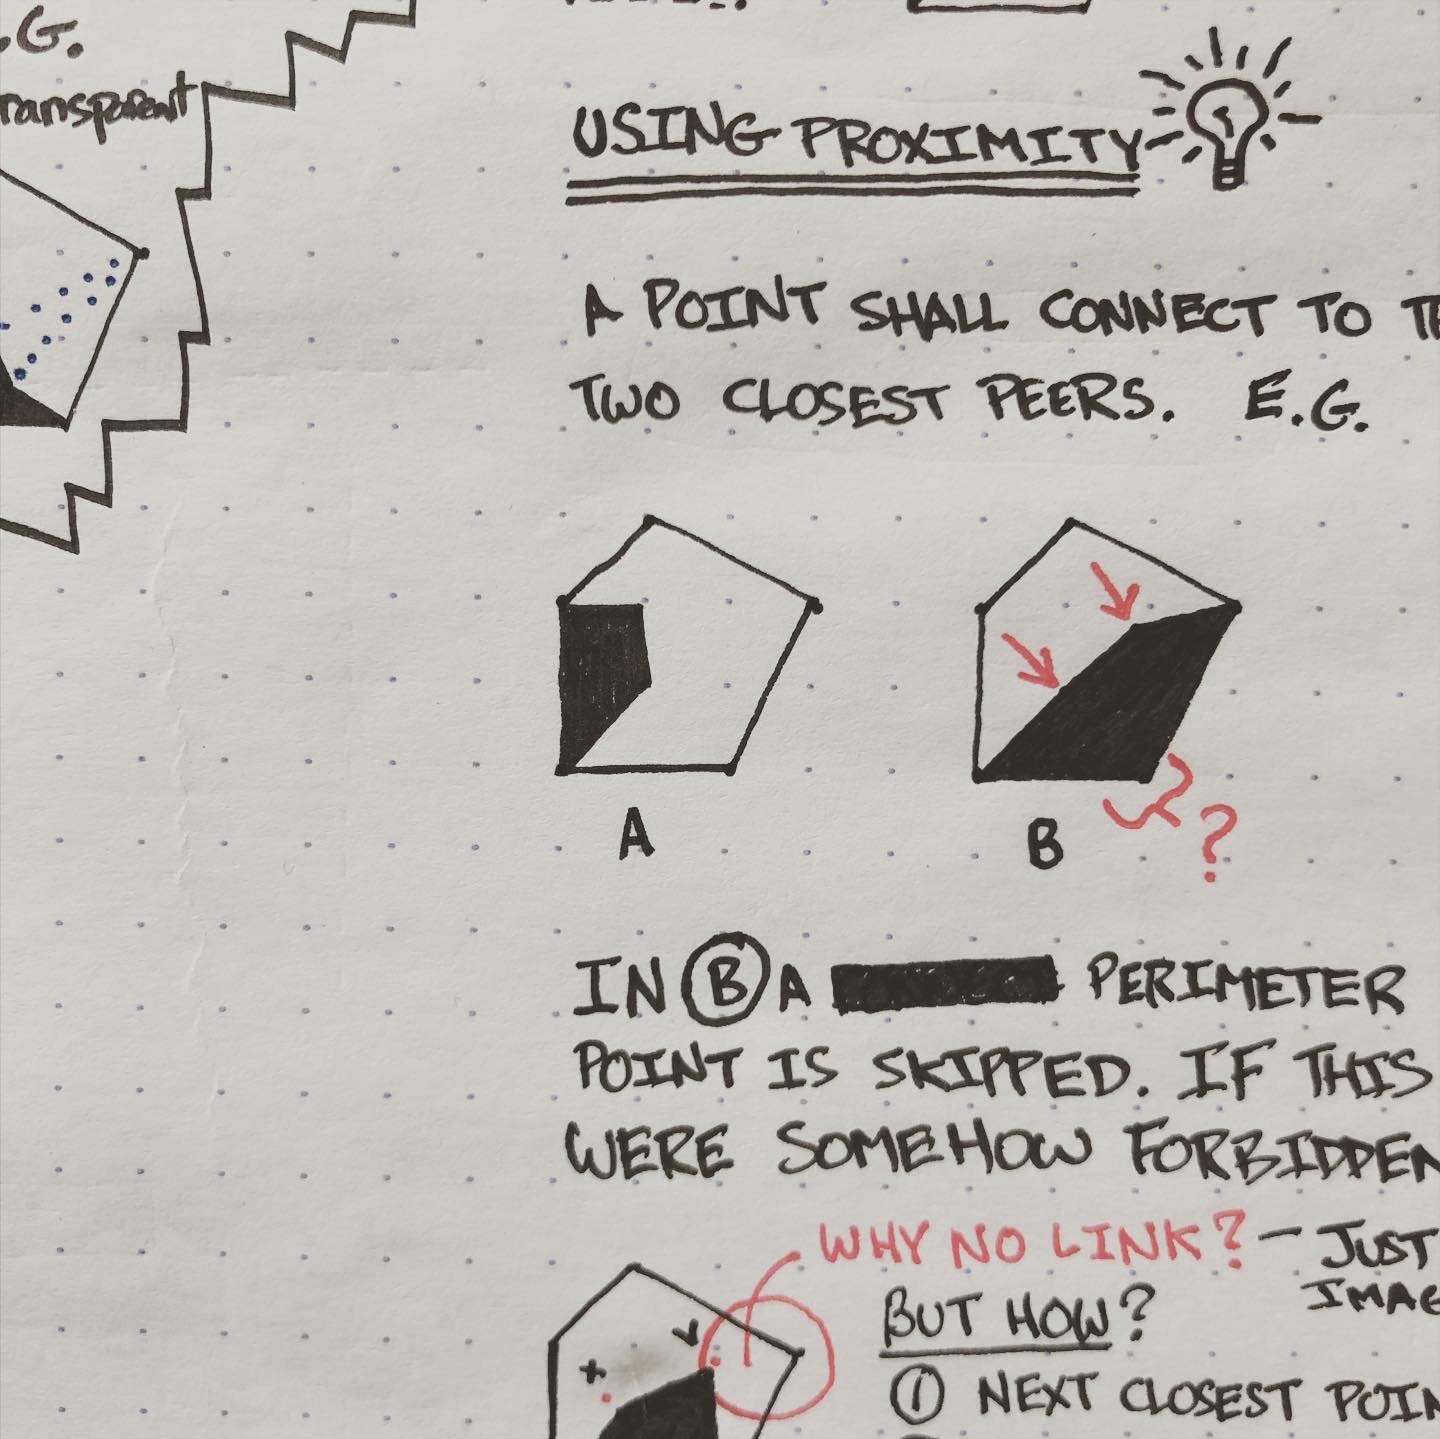 .G.
ransparent
USING PROXIMITY
A POINT SHALL CONNECT TO
TWO CLOSEST PEERS. E.G.
A
B
?
IN B A PERIMETER
POINT IS SKIPPED. IF THIS
WERE SOMEHOW FORBIDDEN
WHY NO LINK? – JUST
IMAG
BUT HOW?
① NEXT CLOSEST POIN